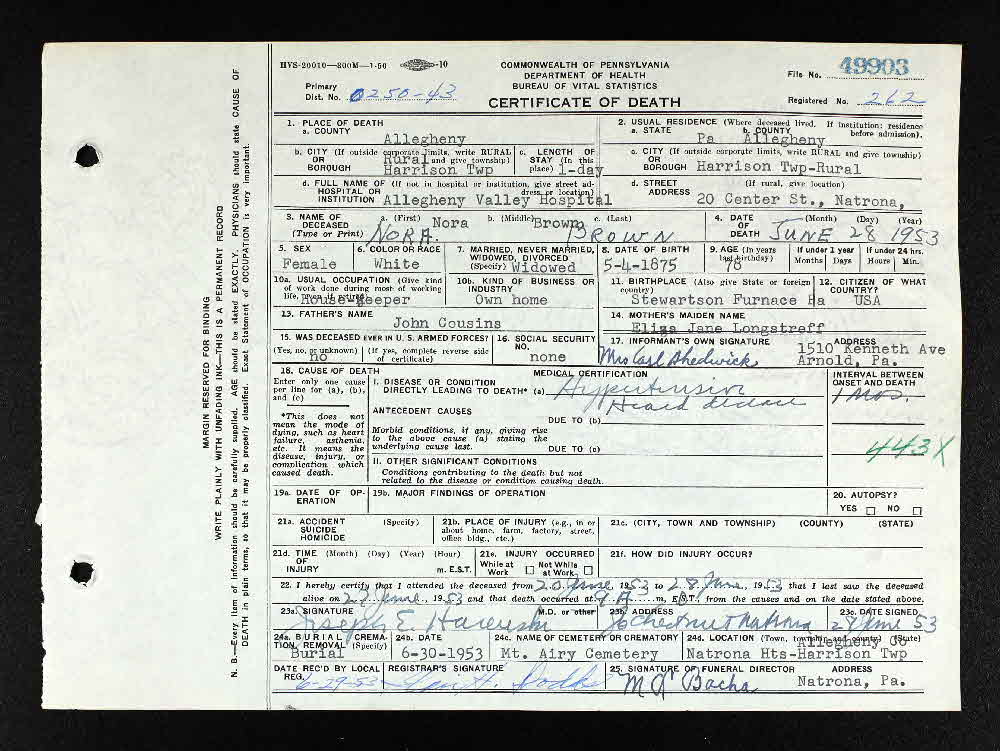 HVS-20010—800M—1-50 -10
COMMONWEALTH OF PENNSYLVANIA
DEPARTMENT OF HEALTH
BUREAU OF VITAL STATISTICS
CERTIFICATE OF DEATH
File No. 49903
Primary
Dist. No. 0250-43
Registered No. 262
1. PLACE OF DEATH
a. COUNTY Allegheny
2. USUAL RESIDENCE (Where deceased lived. If institution: residence before admission).
a. STATE Pa b. COUNTY Allegheny
b. CITY (If outside corporate limits, write RURAL and give township)
OR
BOROUGH Rural Harrison Twp
c. LENGTH OF STAY (In this place) 1-day
c. CITY (If outside corporate limits, write RURAL and give township)
OR
BOROUGH Harrison Twp-Rural
d. FULL NAME OF (If not in hospital or institution, give street address or location)
HOSPITAL OR
INSTITUTION Allegheny Valley Hospital
d. STREET (If rural, give location)
ADDRESS 20 Center St., Natrona,
3. NAME OF DECEASED (Type or Print)
a. (First) b. (Middle) c. (Last)
Nora Brown
NORA BROWN
4. DATE OF DEATH (Month) (Day) (Year)
JUNE 28 1953
5. SEX
Female
6. COLOR OR RACE
White
7. MARRIED, NEVER MARRIED, WIDOWED, DIVORCED
(Specify) Widowed
8. DATE OF BIRTH
5-4-1875
9. AGE (In years last birthday)
78
If under 1 year
Months Days
If under 24 hrs.
Hours Min.
10a. USUAL OCCUPATION (Give kind of work done during most of working life, even if retired)
House-keeper
10b. KIND OF BUSINESS OR INDUSTRY
Own home
11. BIRTHPLACE (Also give State or foreign country)
Stewartson Furnace Pa
12. CITIZEN OF WHAT COUNTRY?
USA
13. FATHER'S NAME
John Cousins
14. MOTHER'S MAIDEN NAME
Eliza Jane Longstreff
15. WAS DECEASED EVER IN U. S. ARMED FORCES?
(Yes, no, or unknown) (If yes, complete reverse side of certificate)
no
16. SOCIAL SECURITY NO.
none
17. INFORMANT'S OWN SIGNATURE ADDRESS
Mrs Carl Shedwick 1510 Kenneth Ave
Arnold, Pa.
18. CAUSE OF DEATH
Enter only one cause per line for (a), (b), and (c)
*This does not mean the mode of dying, such as heart failure, asthenia, etc. It means the disease, injury, or complication which caused death.
MEDICAL CERTIFICATION
I. DISEASE OR CONDITION
DIRECTLY LEADING TO DEATH* (a) Hypertensive
Heart disease
INTERVAL BETWEEN ONSET AND DEATH
1 Mos.
ANTECEDENT CAUSES
DUE TO (b)
Morbid conditions, if any, giving rise to the above cause (a) stating the underlying cause last.
DUE TO (c)
443X
II. OTHER SIGNIFICANT CONDITIONS
Conditions contributing to the death but not related to the disease or condition causing death.
19a. DATE OF OPERATION
19b. MAJOR FINDINGS OF OPERATION
20. AUTOPSY?
YES NO
21a. ACCIDENT SUICIDE HOMICIDE (Specify)
21b. PLACE OF INJURY (e.g., in or about home, farm, factory, street, office bldg., etc.)
21c. (CITY, TOWN AND TOWNSHIP) (COUNTY) (STATE)
21d. TIME OF INJURY (Month) (Day) (Year) (Hour)
m. E.S.T.
21e. INJURY OCCURRED
While at Work Not While at Work
21f. HOW DID INJURY OCCUR?
22. I hereby certify that I attended the deceased from June, 1953 to 28 June, 1953 that I last saw the deceased
alive on 27 June, 1953 and that death occurred at m, E.S.T., from the causes and on the date stated above.
23a. SIGNATURE M.D. or other
Joseph E.
23b. ADDRESS
Chestnut Natrona
23c. DATE SIGNED
28 June 53
24a. BURIAL, CREMATION, REMOVAL (Specify)
Burial
24b. DATE
6-30-1953
24c. NAME OF CEMETERY OR CREMATORY
Mt. Airy Cemetery
24d. LOCATION (Town, township and county) (State)
Allegheny Co
Natrona Hts-Harrison Twp
DATE REC'D BY LOCAL REG.
6-29-53
REGISTRAR'S SIGNATURE
25. SIGNATURE OF FUNERAL DIRECTOR ADDRESS
Bacha Natrona, Pa.
MARGIN RESERVED FOR BINDING
WRITE PLAINLY WITH UNFADING INK—THIS IS A PERMANENT RECORD
N. B.—Every item of information should be carefully supplied. AGE should be stated EXACTLY. PHYSICIANS should state CAUSE OF
DEATH in plain terms, so that it may be properly classified. Exact Statement of OCCUPATION is very important.